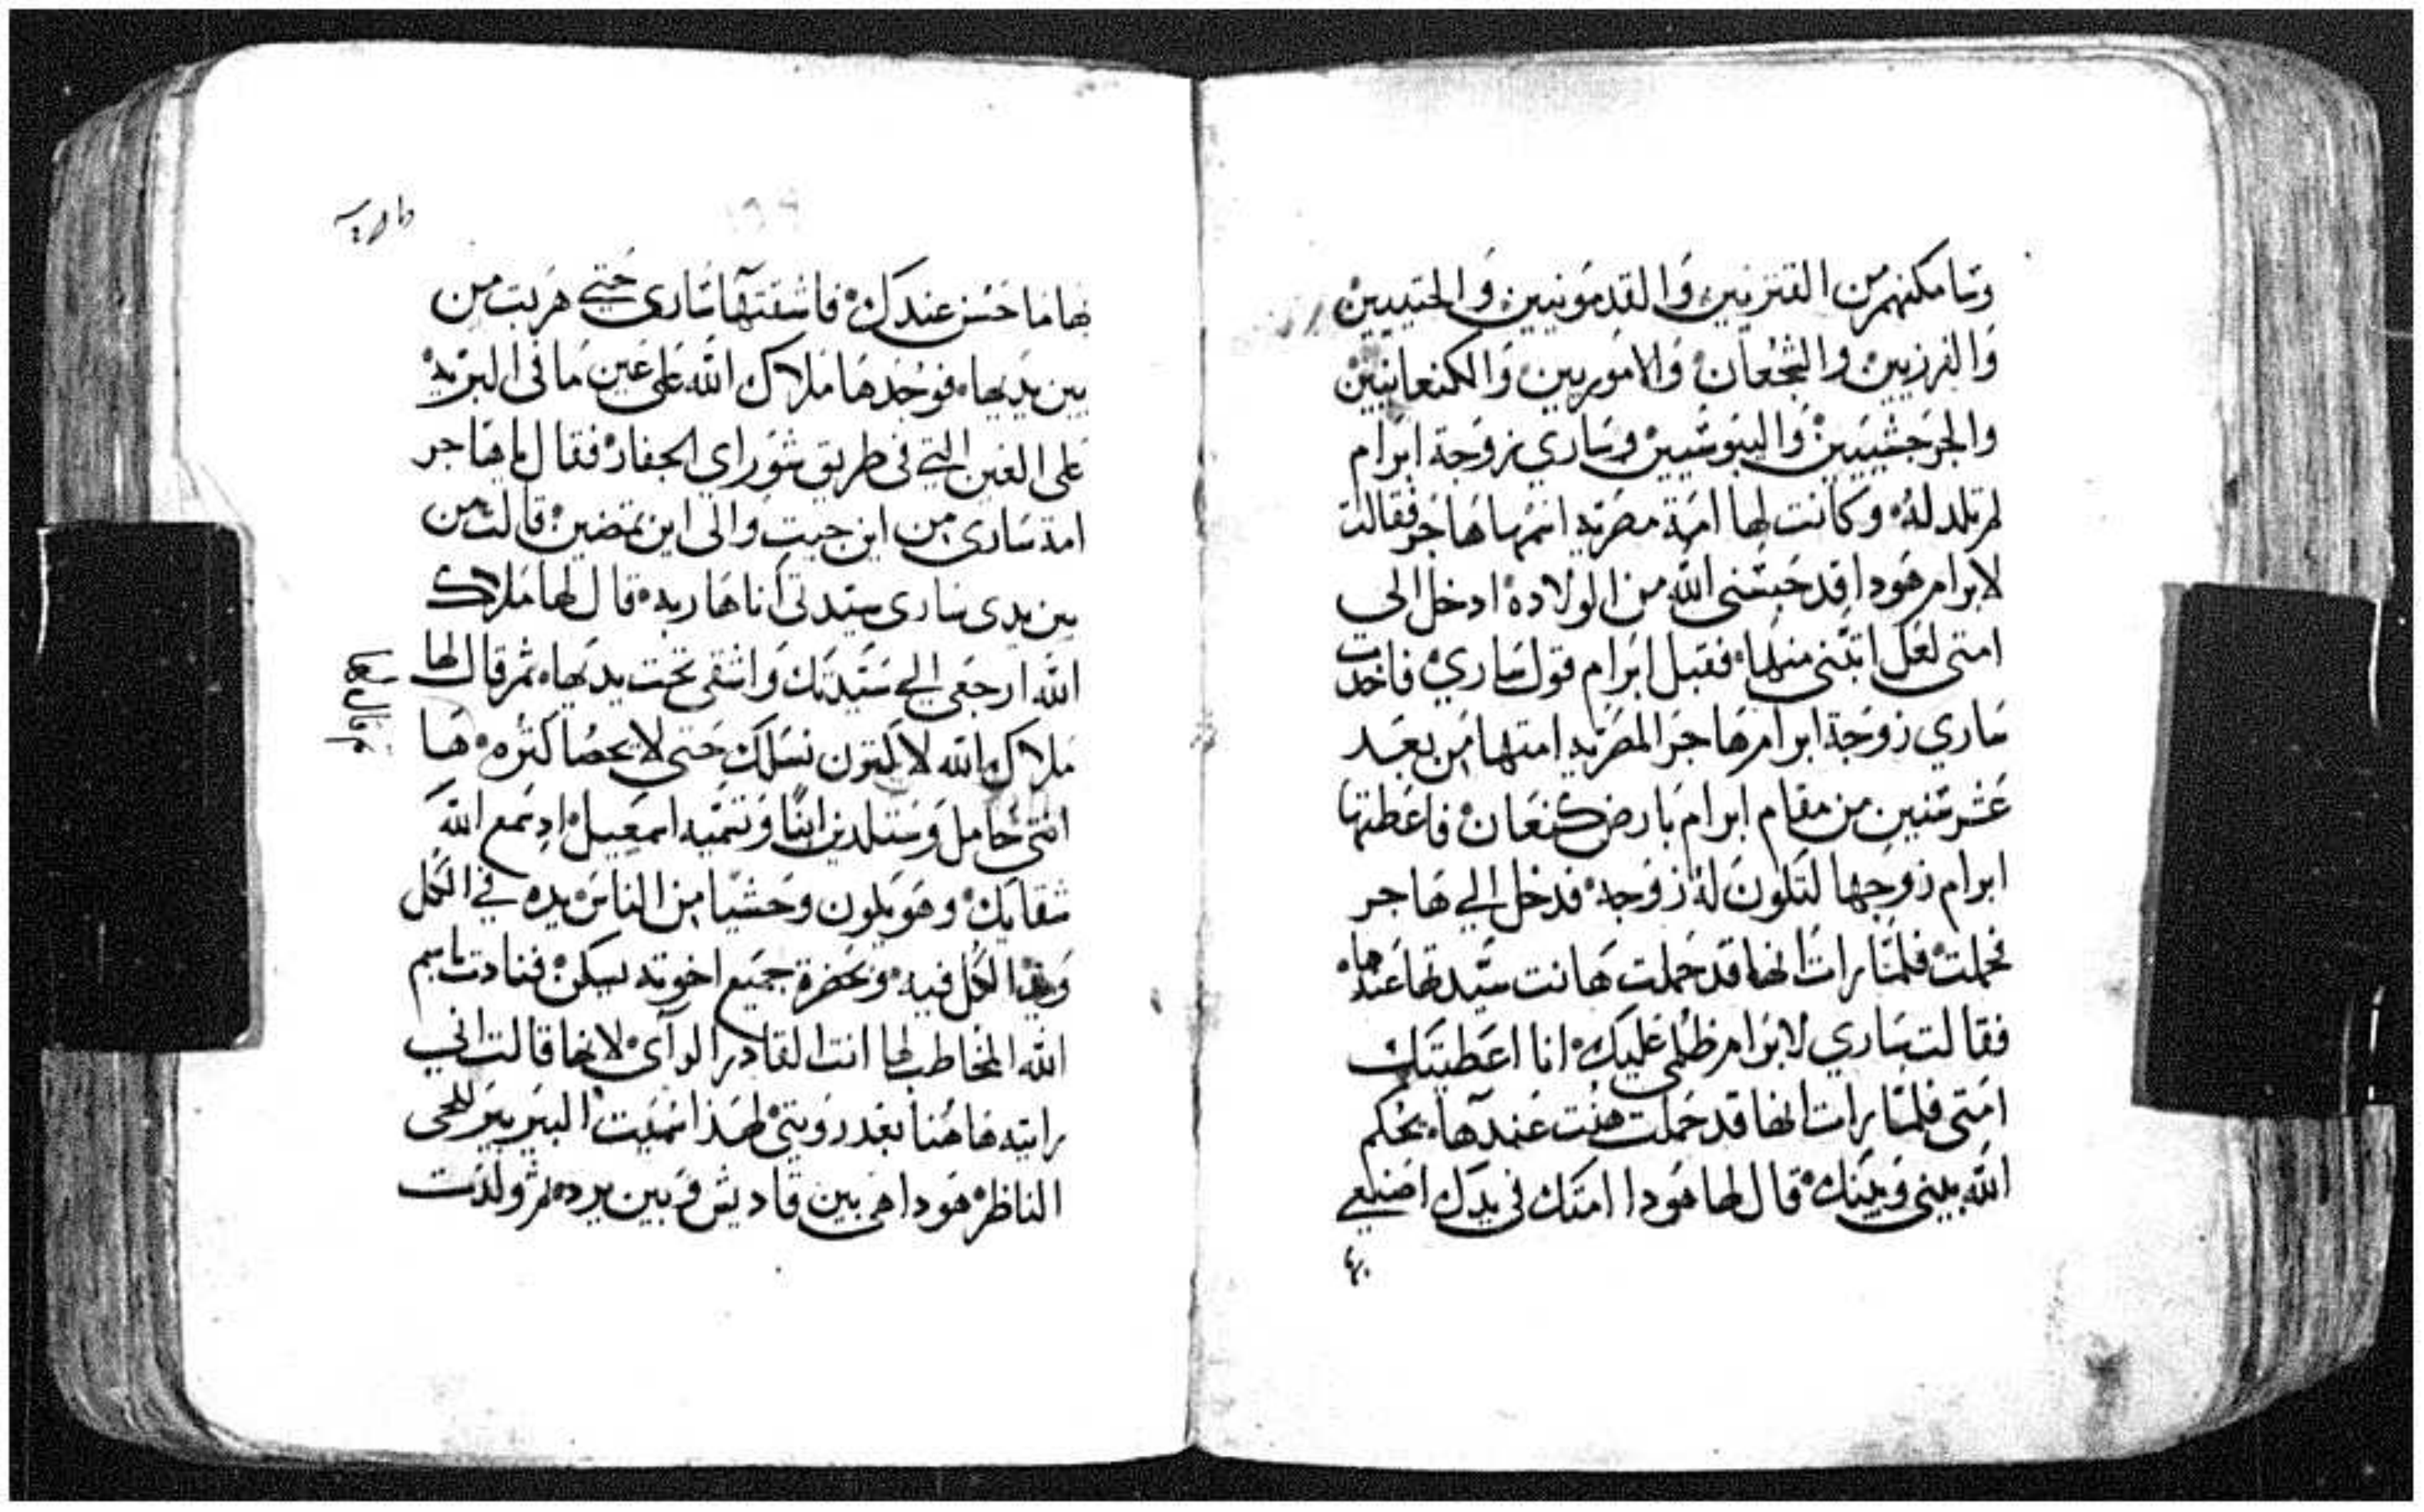 وسامكنهم من القنزيين والقدمونيين والحتيين
والفرزيين والشجعان والاموريين والكنعانيين
والجرجشيين واليبوسيين وساري زوجة ابرام
لم تلد له وكانت لها امة مصرية اسمها هاجر فقالت
لابرام هودا قد حبسني الله من الولادة ادخل الي
امتي لعل ابتني منها فقبل ابرام قول ساري فاخدت
ساري زوجة ابرام هاجر المصرية امتها من بعد
عشر سنين من مقام ابرام بارض كنعان فاعطتها
ابرام زوجها لتكون له زوجة فدخل الي هاجر
فحملت فلما رات انها قد حملت هانت سيدتها عندها
فقالت ساري لابرام ظلمي عليك انا اعطيتك
امتي فلما رات انها قد حملت هنت عندها يحكم
الله بيني وبينك قال لها هودا امتك في يدك اصنعي
بها ما حسن عندك فاشقتها ساري حتي هربت من
بين يديها فوجدها ملاك الله علي عين ما في البرية
علي العين التي في طريق شوراي الجفار فقال يا هاجر
امة ساري من اين جيت والي اين تمضين قالت من
بين يدي ساري سيدتي انا هاربة قال لها ملاك
الله ارجعي الي سيدتك واشقي تحت يديها ثم قال لها
ثم قال لها
ملاك الله لاكثرن نسلك حتي لا يحصا كثره ها
انتي حامل وستلدين ابنا وتسميه اسمعيل اد سمع الله
شقايك وهو يكون وحشيا من الناس يده في الكل
ويد الكل فيه وبحضرة جميع اخوته يسكن فنادت باسم
الله المخاطب لها انت القادر الرآي لانها قالت اني
رايته هاهنا بعد رويتي لهذا سميت البير بير للحي
الناظر هودا هي بين قاديش وبين برد ثم ولدت